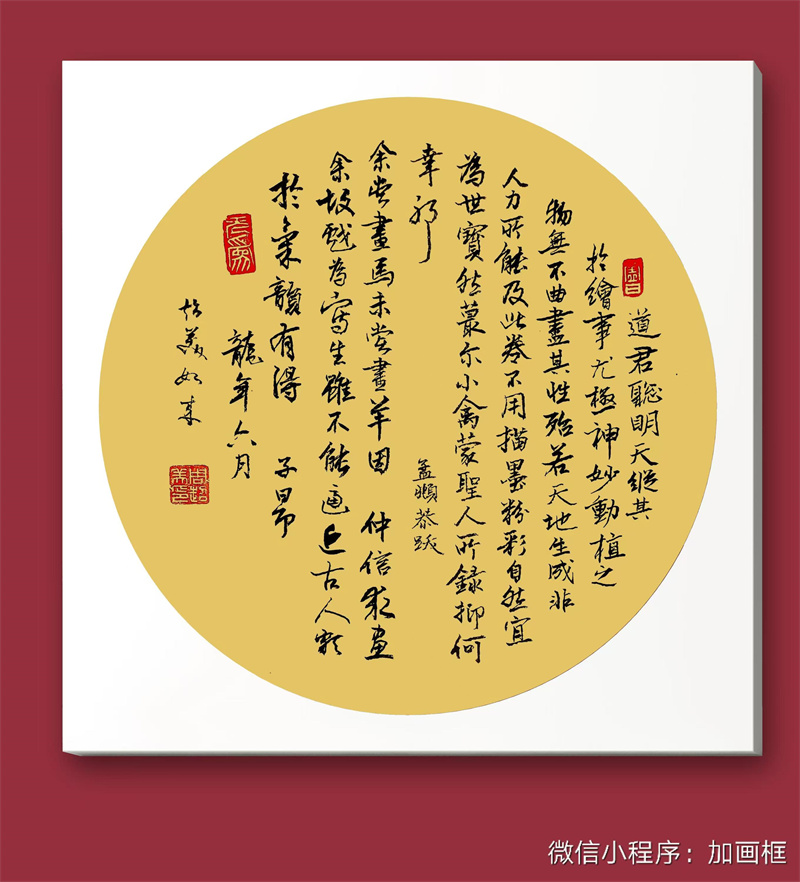 道君聪明天縱其
於繪事尤極神妙動植之
物無不曲盡其性殆若天地生成非
人力所能及此卷不用描墨粉彩自然宜
為世寶然蕞尔小禽蒙聖人所録抑何
幸邪
孟頫恭跋
余嘗畫馬未嘗畫羊因 仲信求畫
余故戲為寫生雖不能逼近古人頗
於氣韻有得 子昂
龍年六月
如來
微信小程序：加画框